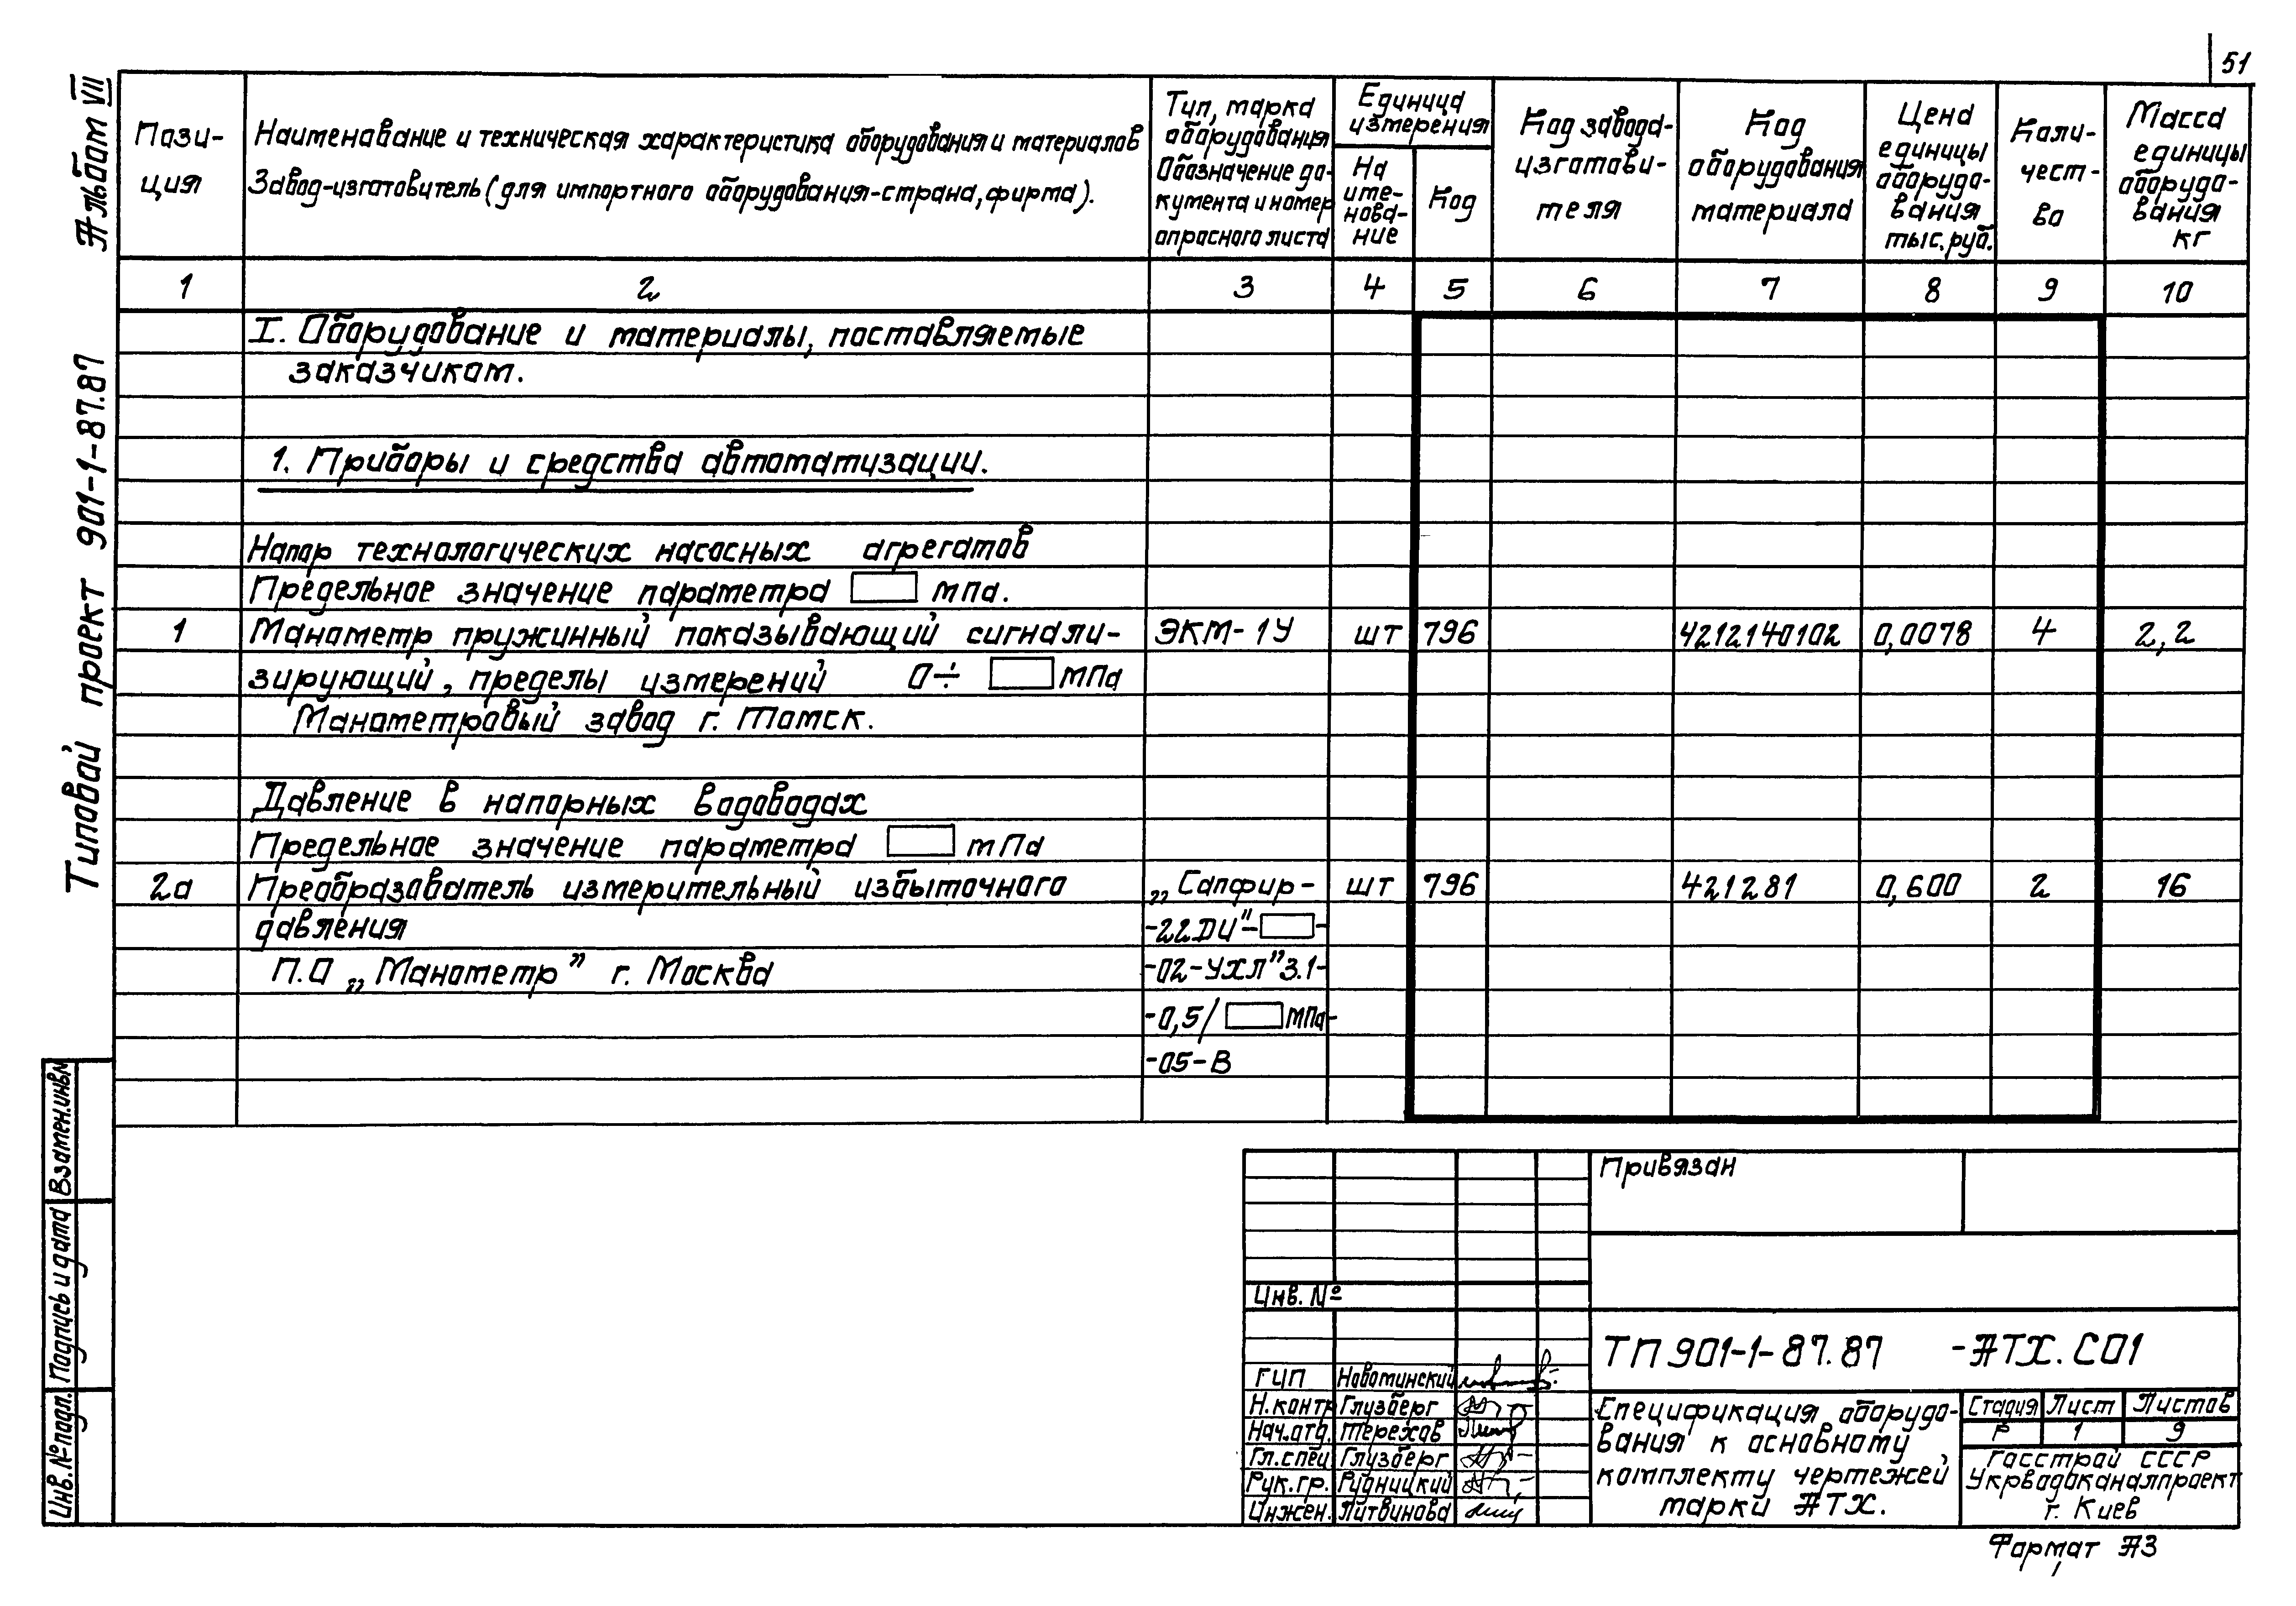 51
Альбом VII
Типовой проект 901-1-87.87
Пози-
ция
Наименование и техническая характеристика оборудования и материалов
Завод-изготовитель (для импортного оборудования-страна, фирма).
Тип, марка
оборудования
Обозначение до-
кумента и номер
опросного листа
Единица
измерения
На
име-
нова-
ние
Код
Код завода-
изготови-
теля
Код
оборудования
материала
Цена
единицы
оборудо-
вания
тыс. руб.
Коли-
чест-
во
Масса
единицы
оборудо-
вания
кг
1 2 3 4 5 6 7 8 9 10
I. Оборудование и материалы, поставляемые
заказчиком.
1. Приборы и средства автоматизации.
Напор технологических насосных агрегатов
Предельное значение параметра мпа.
1 Манометр пружинный показывающий сигнали- ЭКМ-1У шт 796 4212140102 0,0078 4 2,2
зирующий, пределы измерений 0÷ МПа
Манометровый завод г. Томск.
Давление в напорных водоводах
Предельное значение параметра мПа
2а Преобразователь измерительный избыточного „Сапфир- шт 796 421281 0,600 2 16
давления -22ДИ"- -
П.О „Манометр" г. Москва -02-УХЛ"3.1-
-0,5/ МПа-
-05-В
Взамен.инв№
Подпись и дата
Инв.№подл.
Привязан
Инв. №
ТП 901-1-87.87 -АТХ.СО1
ГИП Новоминский
Н.контр Глузберг
Нач.отд. Терехов
Гл.спец Глузберг
Рук.гр. Рудницкий
Инжен. Литвинова
Спецификация оборудо-
вания к основному
комплекту чертежей
марки АТХ.
Стадия Лист Листов
Р 1 9
Госстрой СССР
Укрводоканалпроект
г. Киев
Формат А3